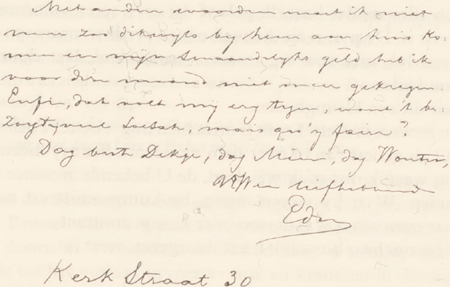 Met andere woorden moet ik niet
meer zoo dikwijls by heem aan huis ko-
men en mijn maandelyks geld heb ik
voor die maand niet meer gekregen.
Enfin, dat valt my erg tegen, want 't be-
zorgt veel last, mais qu'y faire?
Dag beste Dekje, dag Mien, dag Wouter,
UwEen liefhebbend
Edu
Kerk Straat 30